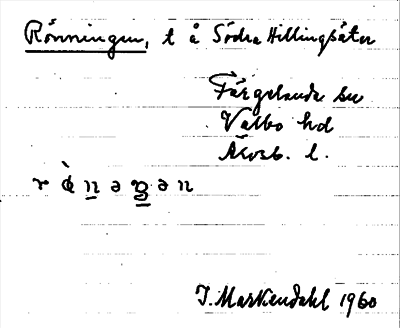 Rönningen, t å Södra Hillingsäter
Färgelanda sn
Valbo hd
Älvsb. l.
J. Markendahl 1960